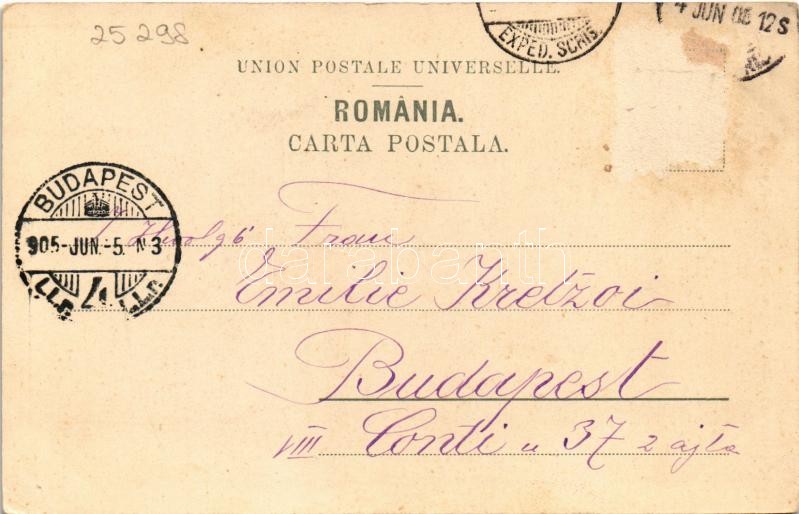 25298
EXPED. SCRIS.
4 JUN 05 12S
UNION POSTALE UNIVERSELLE.
ROMÂNIA.
CARTA POSTALA.
BUDAPEST
905-JUN.-5. N3
4.
Frau
Emilie Kretzoi
Budapest
VIII Conti u 37 2 ajtó
darabanth